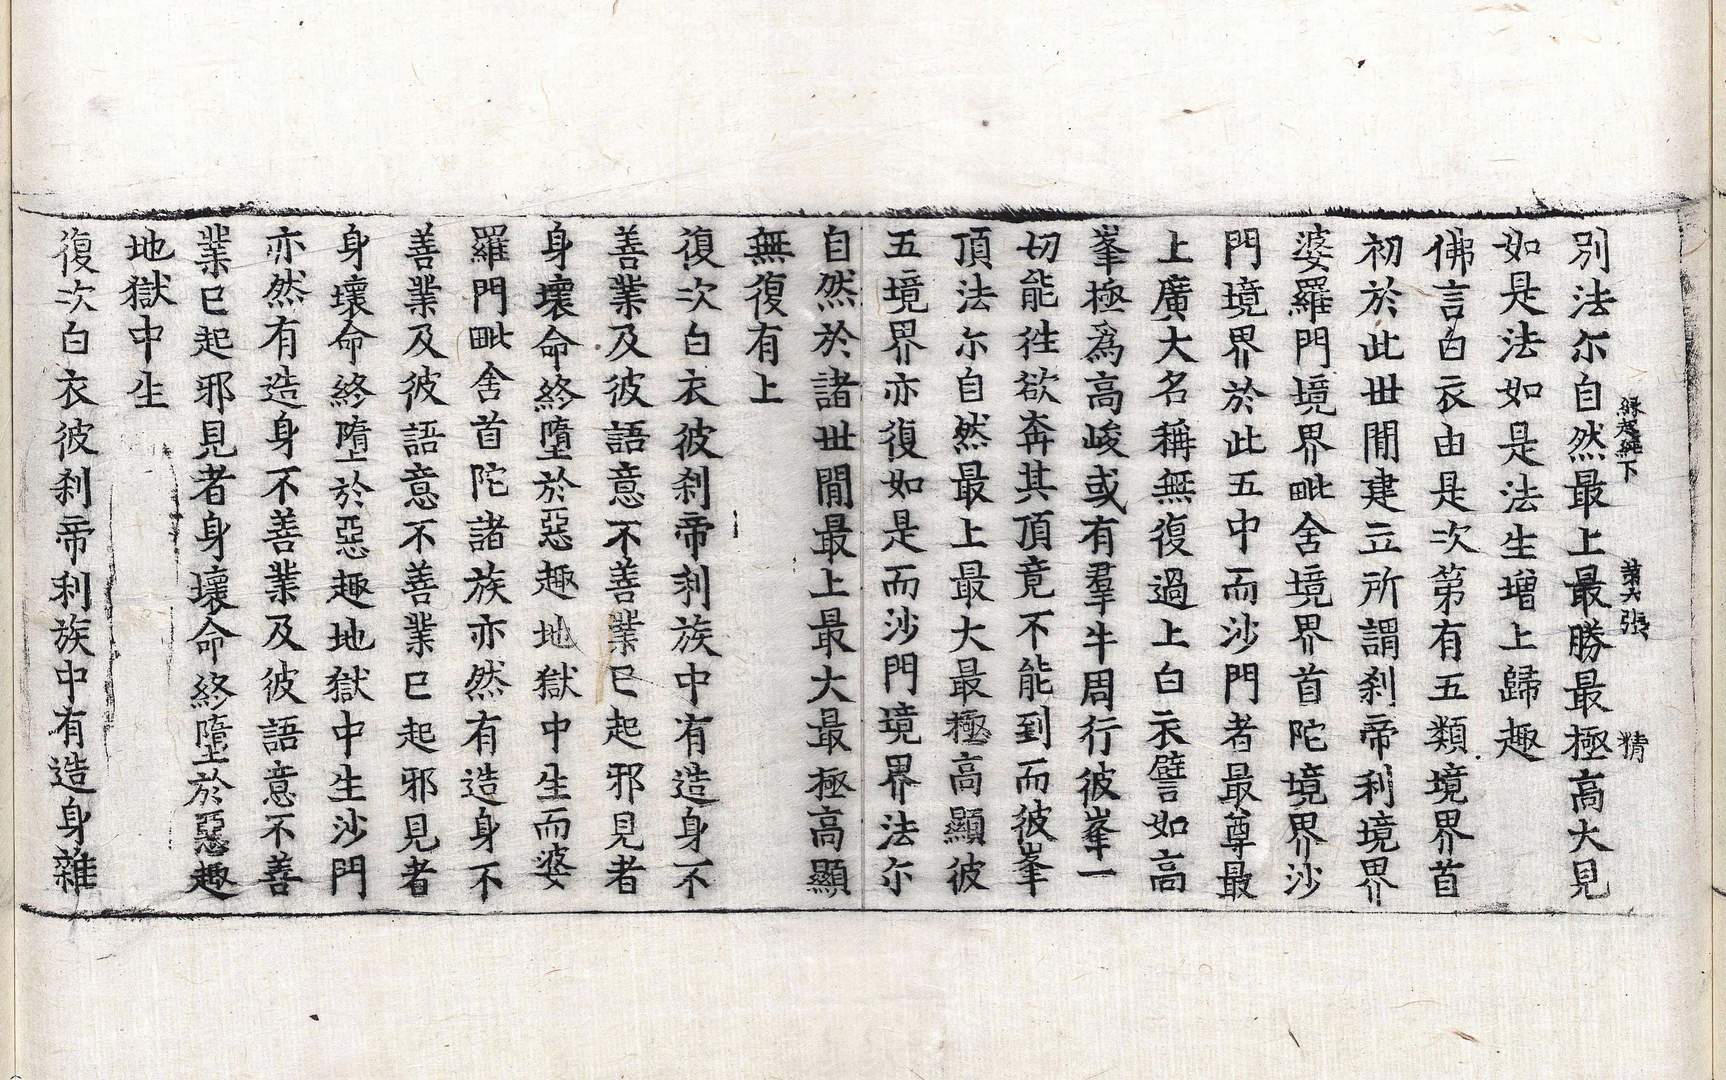 緣起經下 第六張 精
別法尒自然最上最勝最極高大見
如是法如是法生增上歸趣
佛言白衣由是次第有五類境界首
初於此世間建立所謂刹帝利境界
婆羅門境界毗舍境界首陀境界沙
門境界於此五中而沙門者最尊最
上廣大名稱無復過上白衣譬如高
峯極爲高峻或有羣牛周行彼峯一
切能徃欲奔其頂竟不能到而彼峯
頂法尒自然最上最大最極高顯彼
五境界亦復如是而沙門境界法尒
自然於諸世間最上最大最極高顯
無復有上
復次白衣彼刹帝利族中有造身不
善業及彼語意不善業已起邪見者
身壞命終墮於惡趣地獄中生而婆
羅門毗舍首陀諸族亦然有造身不
善業及彼語意不善業已起邪見者
身壞命終墮於惡趣地獄中生沙門
亦然有造身不善業及彼語意不善
業已起邪見者身壞命終墮於惡趣
地獄中生
復次白衣彼刹帝利族中有造身雜